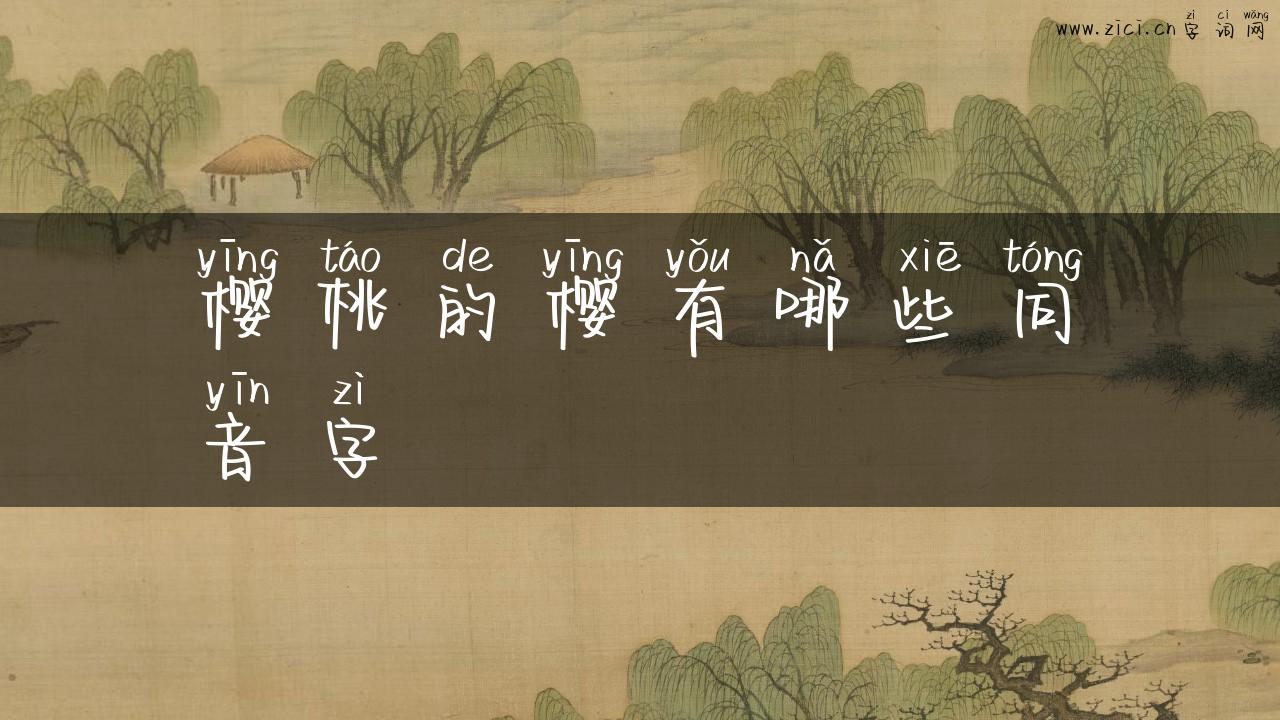 zì cí wǎng
www.zici.cn 字 词 网
yīng táo de yīng yǒu nǎ xiē tóng
樱 桃 的 樱 有 哪 些 同
yīn zì
音 字